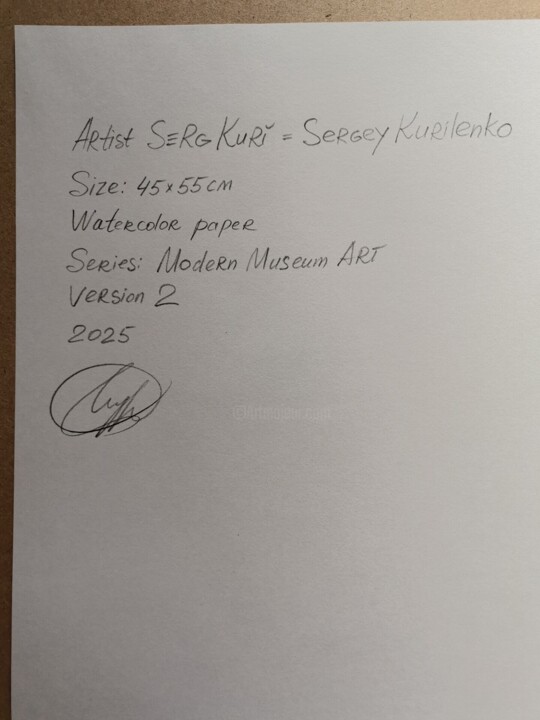 Artist SERG KURĬ = SERGEY KURILENKO
Size: 45x55 cm
Watercolor paper
Series: Modern Museum ART
Version 2
2025